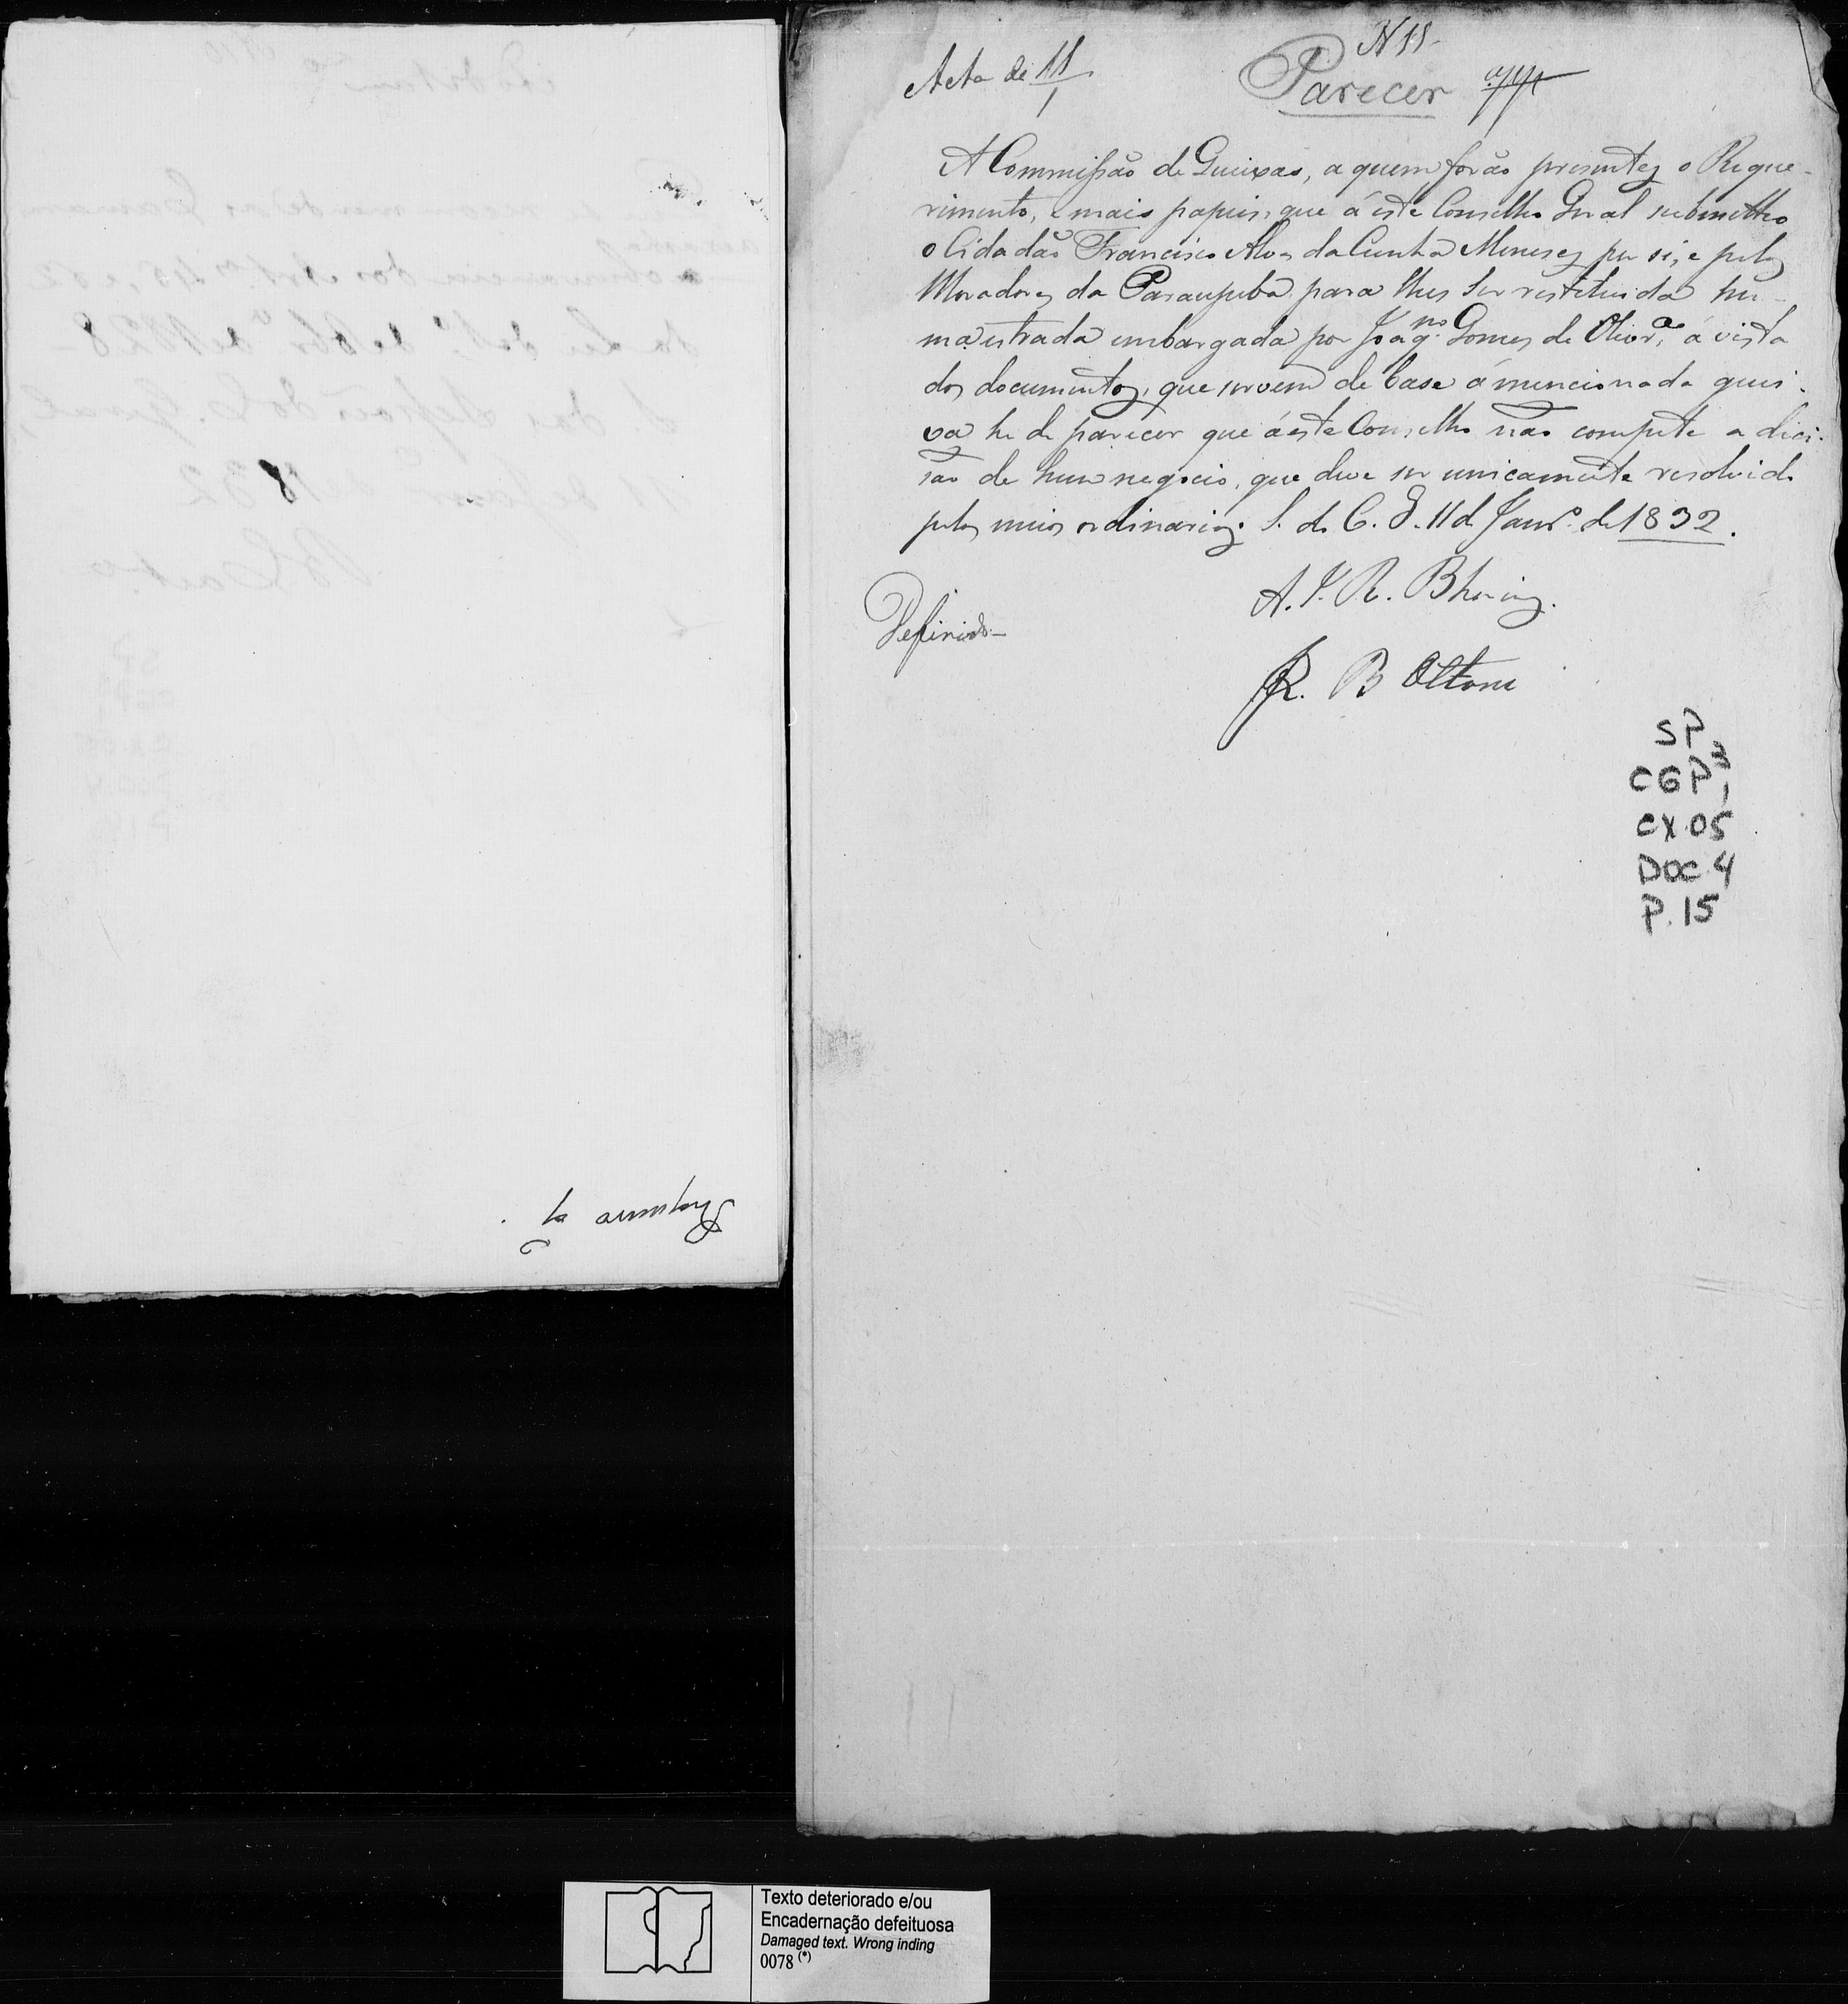 Acta de 11/1
N 11
Parecer
A Commissão de Queixas, a quem forão presentes o Reque-
rimento, e mais papeis, que á este Conselho Geral submetteo
o Cidadão Francisco Alves da Cunha Meneses por si, e pelos
Moradores da Paraupeba para lhes ser restituida hu-
ma estrada embargada por Joaq.^m Gomes de Olivr.^a, á vista
dos documentos, que servem de base á mencionada quei-
xa he de parecer que á este Conselho não compete a deci-
são de hum negocio, que deve ser unicamente resolvido
pelos meios ordinarios. S. do C. G. 11 de Janr.^o de 1832.
A. J. R. Bhering.
R. B Ottoni
SP
CGP 3
1
CX.05
DOC.4
P.15
Texto deteriorado e/ou
Encadernação defeituosa
Damaged text. Wrong inding
0078 (*)